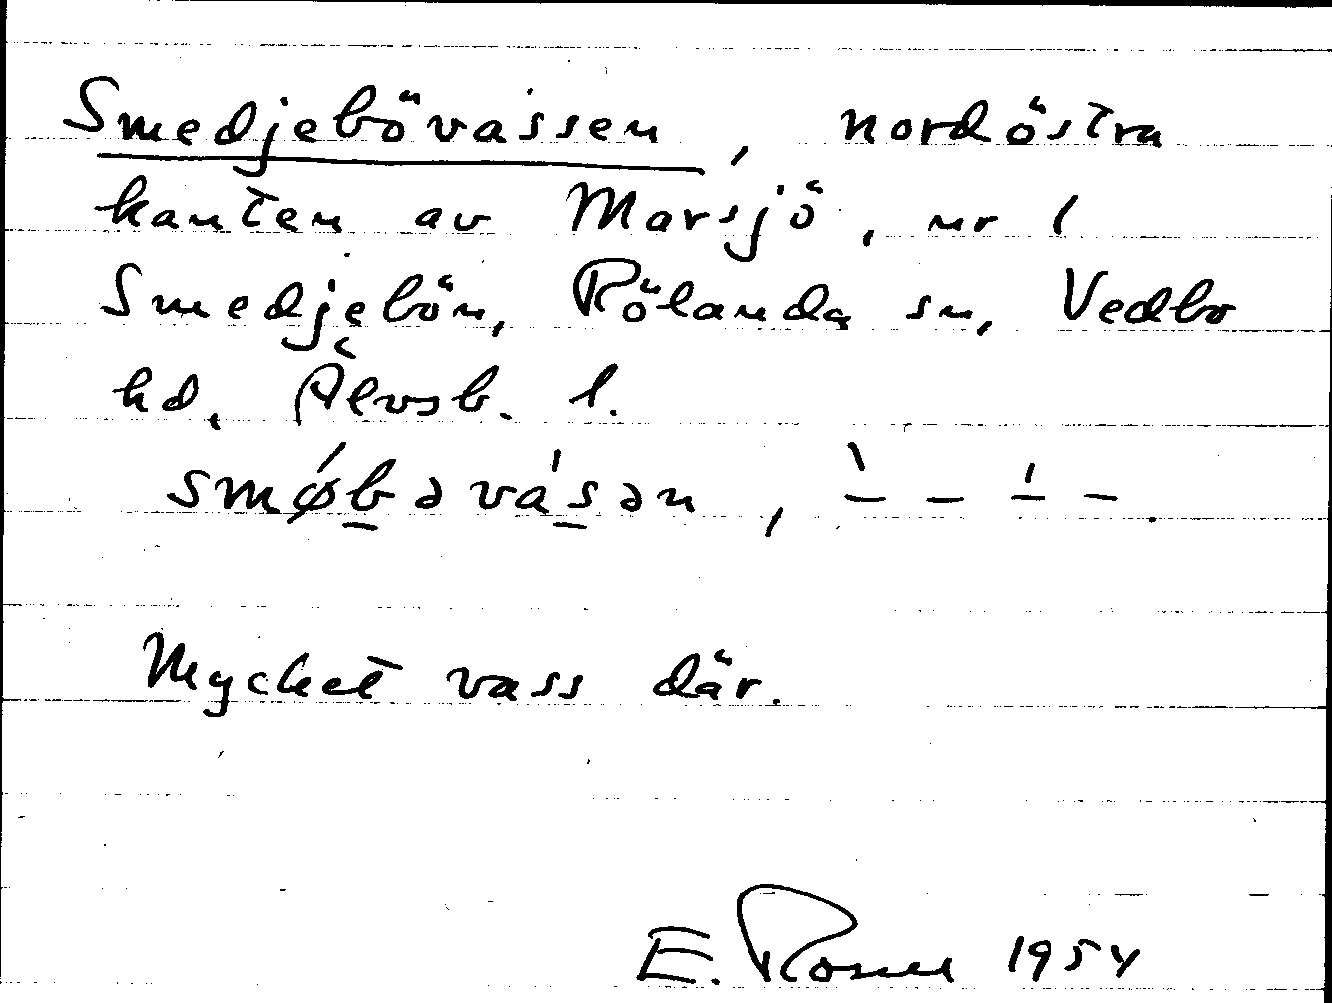 Smedjebövassen, nordöstra
kanten av Marsjö, nr 1
Smedjebön, Rölanda sn, Vedbo
hd, Älvsb. l.
smø̀bəvásən, ` – ' –.
Mycket vass där.
E. Rosell 1954